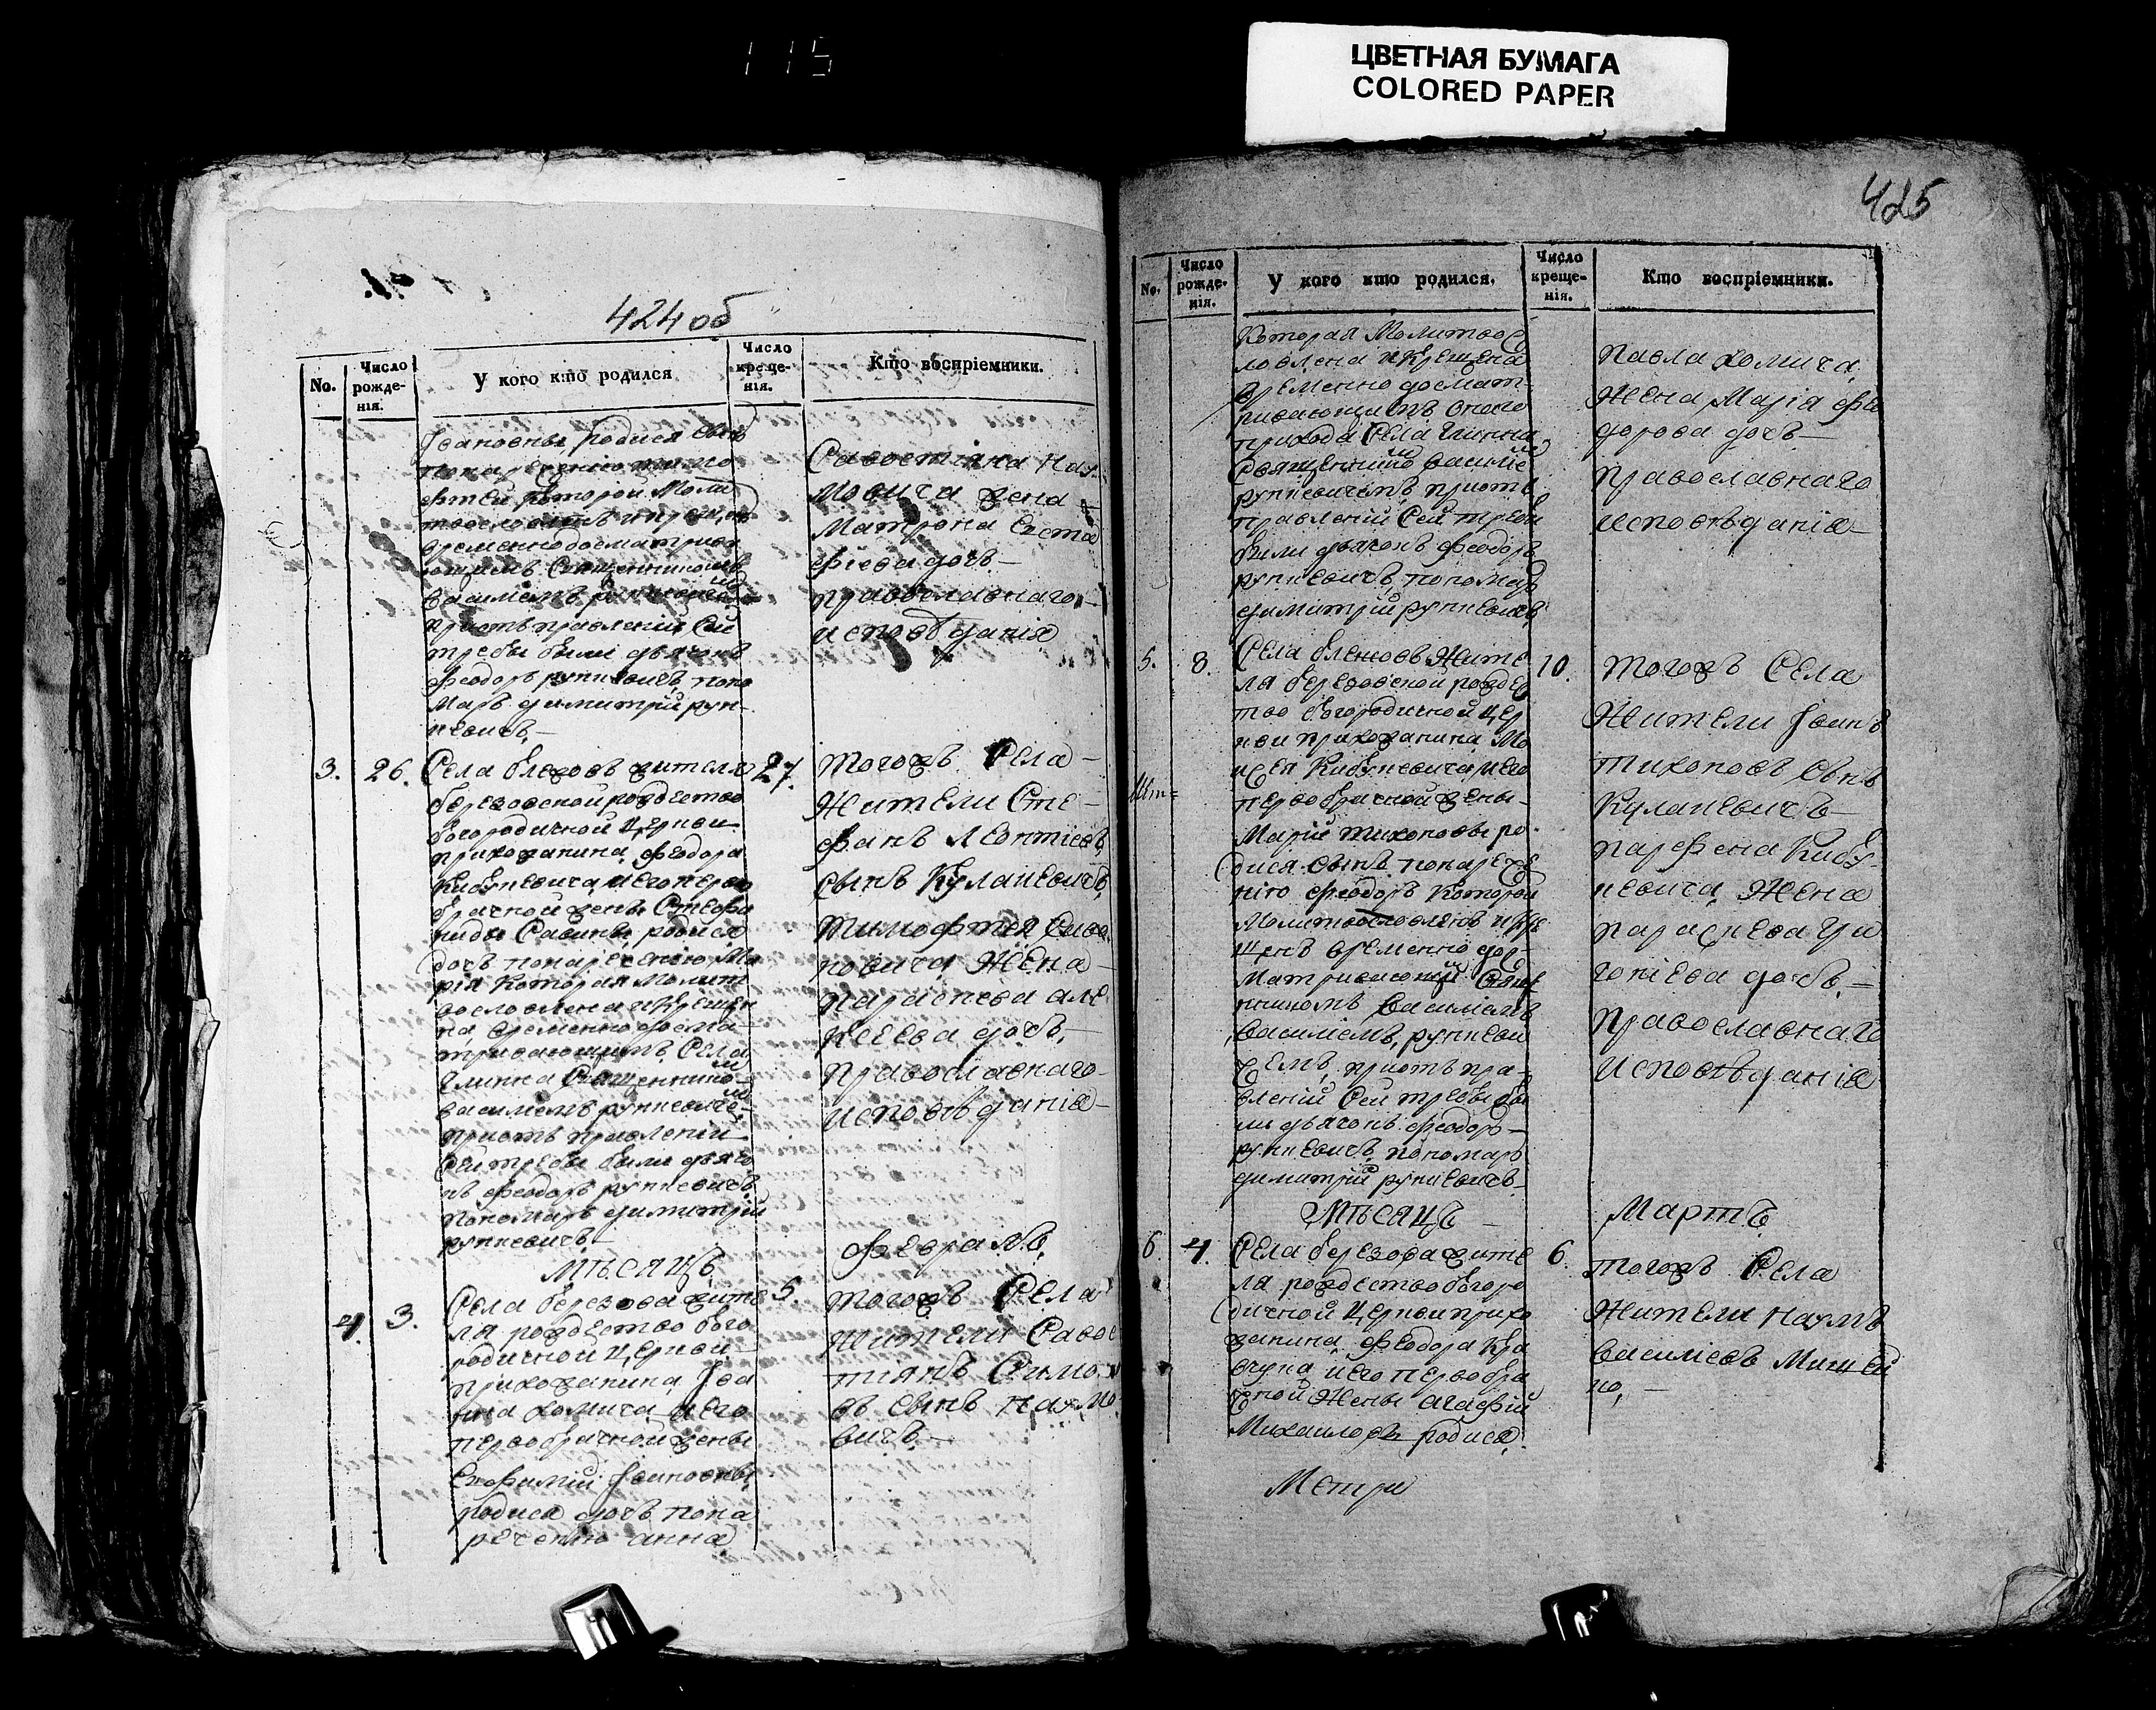 115
ЦВЕТНАЯ БУМАГА
COLORED PAPER
424 об
No.
Число рожде-нія.
У кого кто родился
Число креще-нія.
Кто воспріемники.
Іоановны, родися сынъ
по нарѣченію тимо
фтей которой Моли
твословленъ и крещенъ
временно досматрива
ющимъ Священникомъ
Василіемъ рупкевичемъ
приотъправленіи Сей
требы были дьячокъ
феодоръ рупкевичъ поно
марь димитрій руп
кевичъ,—
Савостіяна Нау
мовича жена
Матрона Евста
фіева дочъ—
православнаго,—
исповѣданія
3.
26.
Села блежовъ жителя
березовской рождество
богородичной Церкви
прихожанина, феодора
Кибукевича, и его перво
брачной жены Стефа
ниды Савины, родися
дочъ по нареченію Ма
рія Которая Молит
вословлена и Крещен
на, временно досма—
тривающимъ, Села
Глинна Священнико
василіемъ рупкевиче
приотъправленіи
Сей требы были дьячо
къ феодоръ рупкевичъ,
пономарь димитрій
рупкевичъ—
27.
Тогожъ Села—
Жители Сте—
фанъ Леонтіевъ,
сынъ Кулакевичъ,
Тимофтея Сиво
новича, Жена—
параскева але
ксеева дочъ,—
православнаго—
исповѣданія—
Мѣсяцъ,
февраль,
4.
3.
Села березова жите
ля рождество бого
родичной Церкви—
прихожанина, Іоа
нна хомича и его
первобрачной жены
Евфимій Іоановны,
родися дочъ по на
речению анна
5
тогожъ Села
жители Савос
тіянъ Симо
въ сынъ Наумо
вичъ,—
425
No.
Число рожде-нія.
У кого кто родился.
Число креще-нія.
Кто воспріемники.
Которая Молитвос
ловлена и Крещена
временно досмат—
ривающимъ оного
прихода Села Глинна
Священнико василіе
рупкевичемъ, приотъ
правленій Сей требы
были дьячокъ феодоръ
рупкевичъ, пономарь
димитрій рупкевичъ,
павла хомича,
Жена Марія фе
дорова дочъ—
православнаго
исповѣданія—
5.
8.
Села блежовъ Жите
ля березовской рождес
тво богородичной Цер
кви прихожанина Мо
исея Кибукевича, и его
первобрачной жены—
Марій тихоновы ро-
дися сынъ, по нарече
нію феодоръ Которой
Молитвословленъ и Кре
щенъ временно дос-
матривающій Свящ
нникомъ Василіемъ
василіемъ, рупкеви
чемъ, приотъпра-
вленій Сей требы бы
ли дьячокъ феодоръ—
рупкевичъ, пономарь
димитрій рупкевичъ—
10.
Тогожъ Села
Жители Іоанъ
Тихоновъ сынъ
Кулакевичъ—
парфена Кибу-
кевича, Жена
параскева Гри
горіева дочъ,—
православнаго
Исповѣданія—
Мѣсяцъ—
Мартъ,
6.
4.
Села березова жите
ля рождество богоро
дичной Церкви прихо
жанина, феодора Кра
вчука, и его первобра
чной Жены агафій
Михаиловъ родися,
6.
тогожъ Села
Жители Наумъ
Василіевъ Мищен
ко,—
Метри